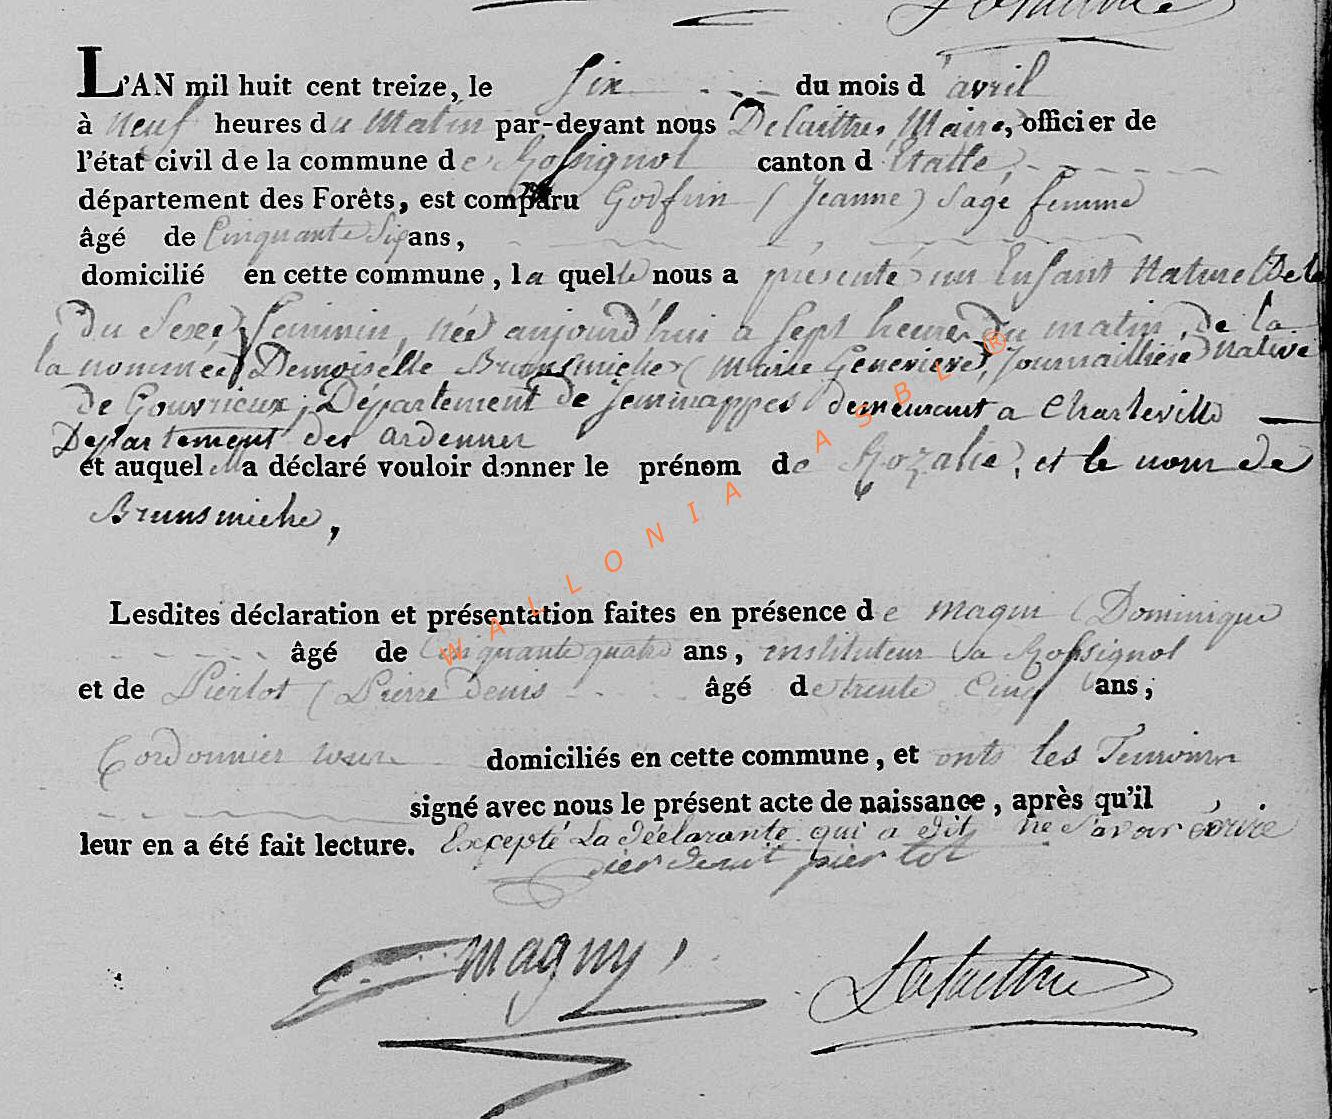 L'AN mil huit cent treize, le Six du mois d'avril
à Neuf heures du Matin par-devant nous Delaittre, Maire, officier de
l'état civil de la commune de Rossignol canton d'Etalle,
département des Forêts, est comparu Godfrin (Jeanne) Sage femme
âgé de Cinquante Six ans,
domicilié en cette commune, la quelle nous a présenté un Enfant Naturel De la
Du Sexe feminin, Née aujourd'hui a Sept heures Du matin, de la
la nommée Demoiselle Brunsmiche (Marie Genevieve) Journailliere Native
de Gouvrieux, Département De Jemmappes demeurant a Charleville
Departement des ardennes
et auquel ella a déclaré vouloir donner le prénom de Rozalie, et le nom de
Brunsmiche,
Lesdites déclaration et présentation faites en présence de Magni (Dominique
âgé de Cinquante quatre ans, instituteur a Rossignol
et de Pierlot (Pierre Denis âgé de trente Cinq ans,
Cordonnier domiciliés en cette commune, et onts les Temoins
signé avec nous le présent acte de naissance, après qu'il
leur en a été fait lecture. Excepté La déclarante qui a dit ne Savoir écrire
pierlot
Magny
Delaittre
WALLONIA ASBL ®